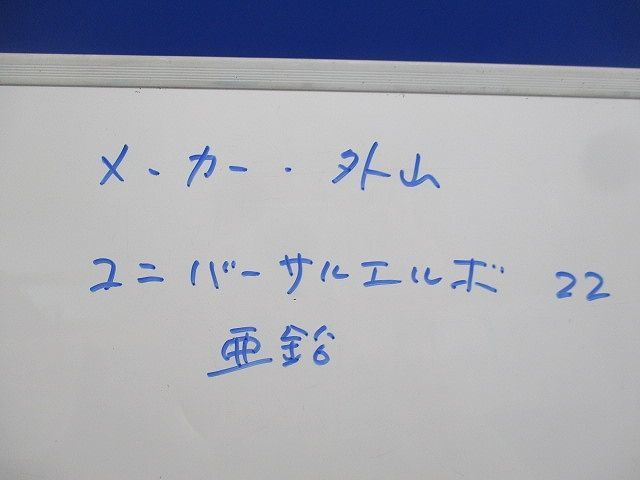 メーカー・外山
ユニバーサルエルボ 22
亜鉛